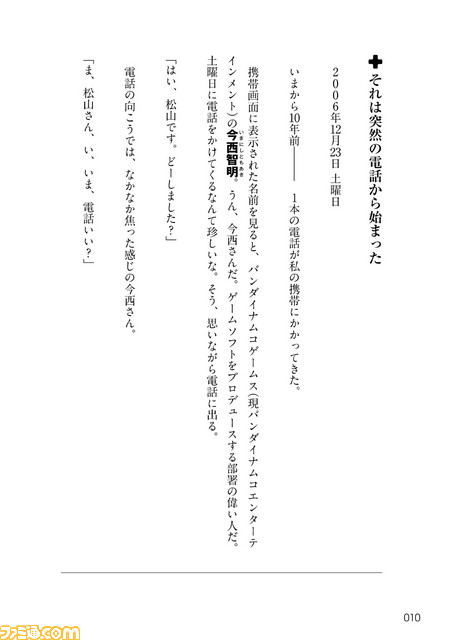 ✚それは突然の電話から始まった
2006年12月23日 土曜日
いまから10年前―― 1本の電話が私の携帯にかかってきた。
携帯画面に表示された名前を見ると、バンダイナムコゲームス(現バンダイナムコエンターテ
インメント)の今西智明。うん、今西さんだ。ゲームソフトをプロデュースする部署の偉い人だ。
いまにしともあき
土曜日に電話をかけてくるなんて珍しいな。そう、思いながら電話に出る。
「はい、松山です。どーしました?」
電話の向こうでは、なかなか焦った感じの今西さん。
「ま、松山さん、い、いま、電話いい?」
010
ファミ通.com